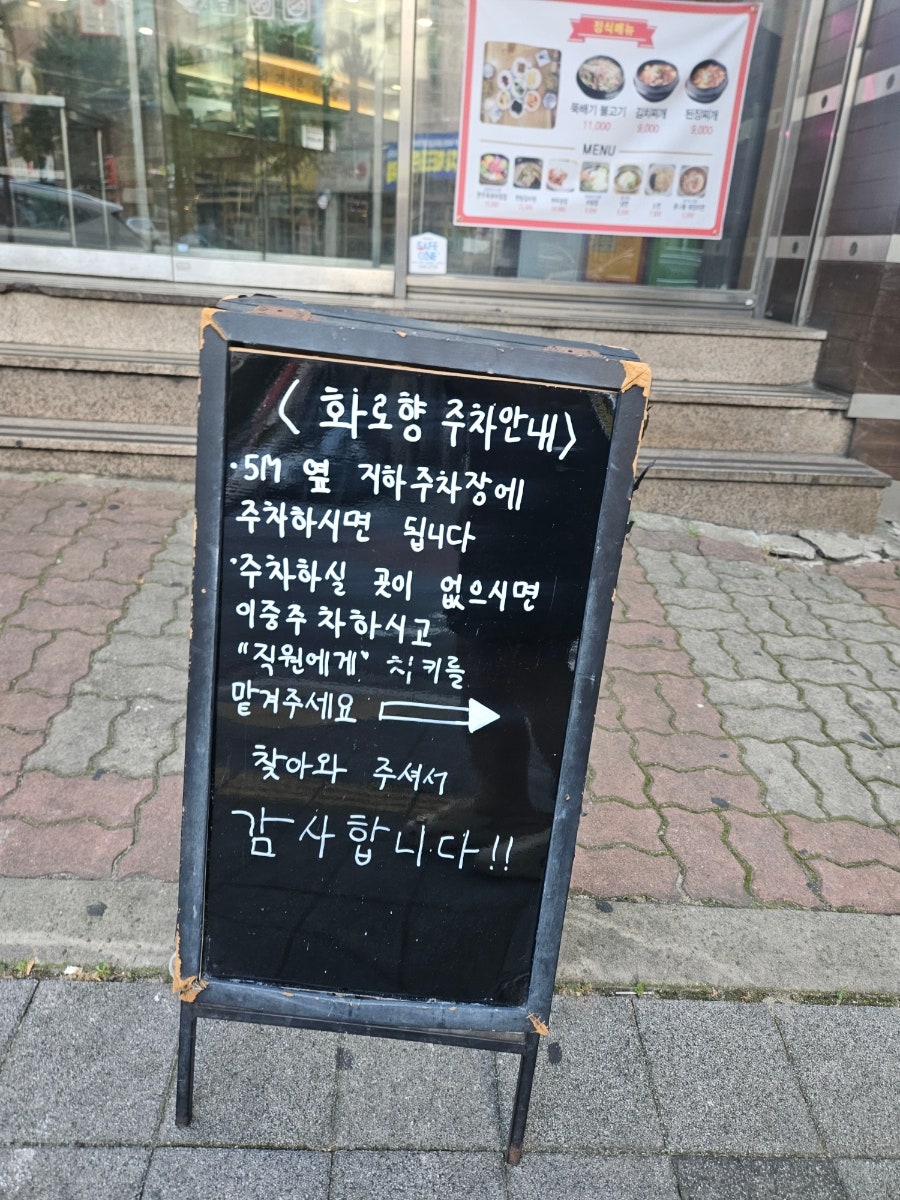 정식메뉴
뚝배기 불고기 김치찌개 된장찌개
11,000 9,000 9,000
MENU
SAFE
ONE
< 화로향 주차안내>
·5M 옆 지하주차장에
주차하시면 됩니다
·주차하실 곳이 없으시면
이중주차하시고
"직원에게" 차키를
맡겨주세요
찾아와 주셔서
감사합니다!!